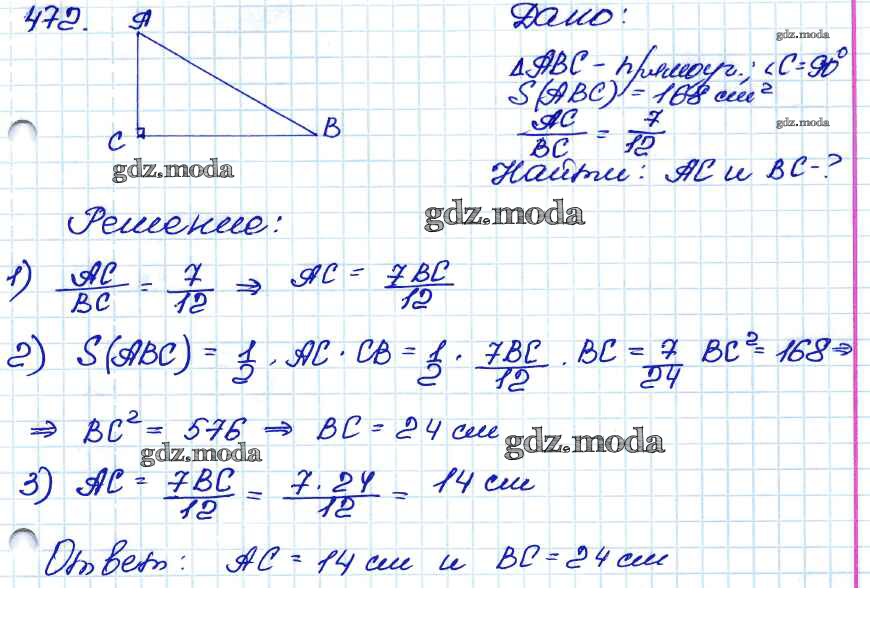 472.
A
C
B
Дано:
gdz.moda
△ABC - прямоуг.; ∠C = 90⁰
S(ABC) = 168 см²
AC/BC = 7/12
gdz.moda
Найти: AC и BC-?
gdz.moda
Решение:
gdz.moda
1) AC/BC = 7/12 ⇒ AC = 7BC/12
2) S(ABC) = 1/2 · AC · CB = 1/2 · 7BC/12 · BC = 7/24 BC² = 168 ⇒
⇒ BC² = 576 ⇒ BC = 24 см
gdz.moda
gdz.moda
3) AC = 7BC/12 = 7·24/12 = 14 см
Ответ: AC = 14 см и BC = 24 см